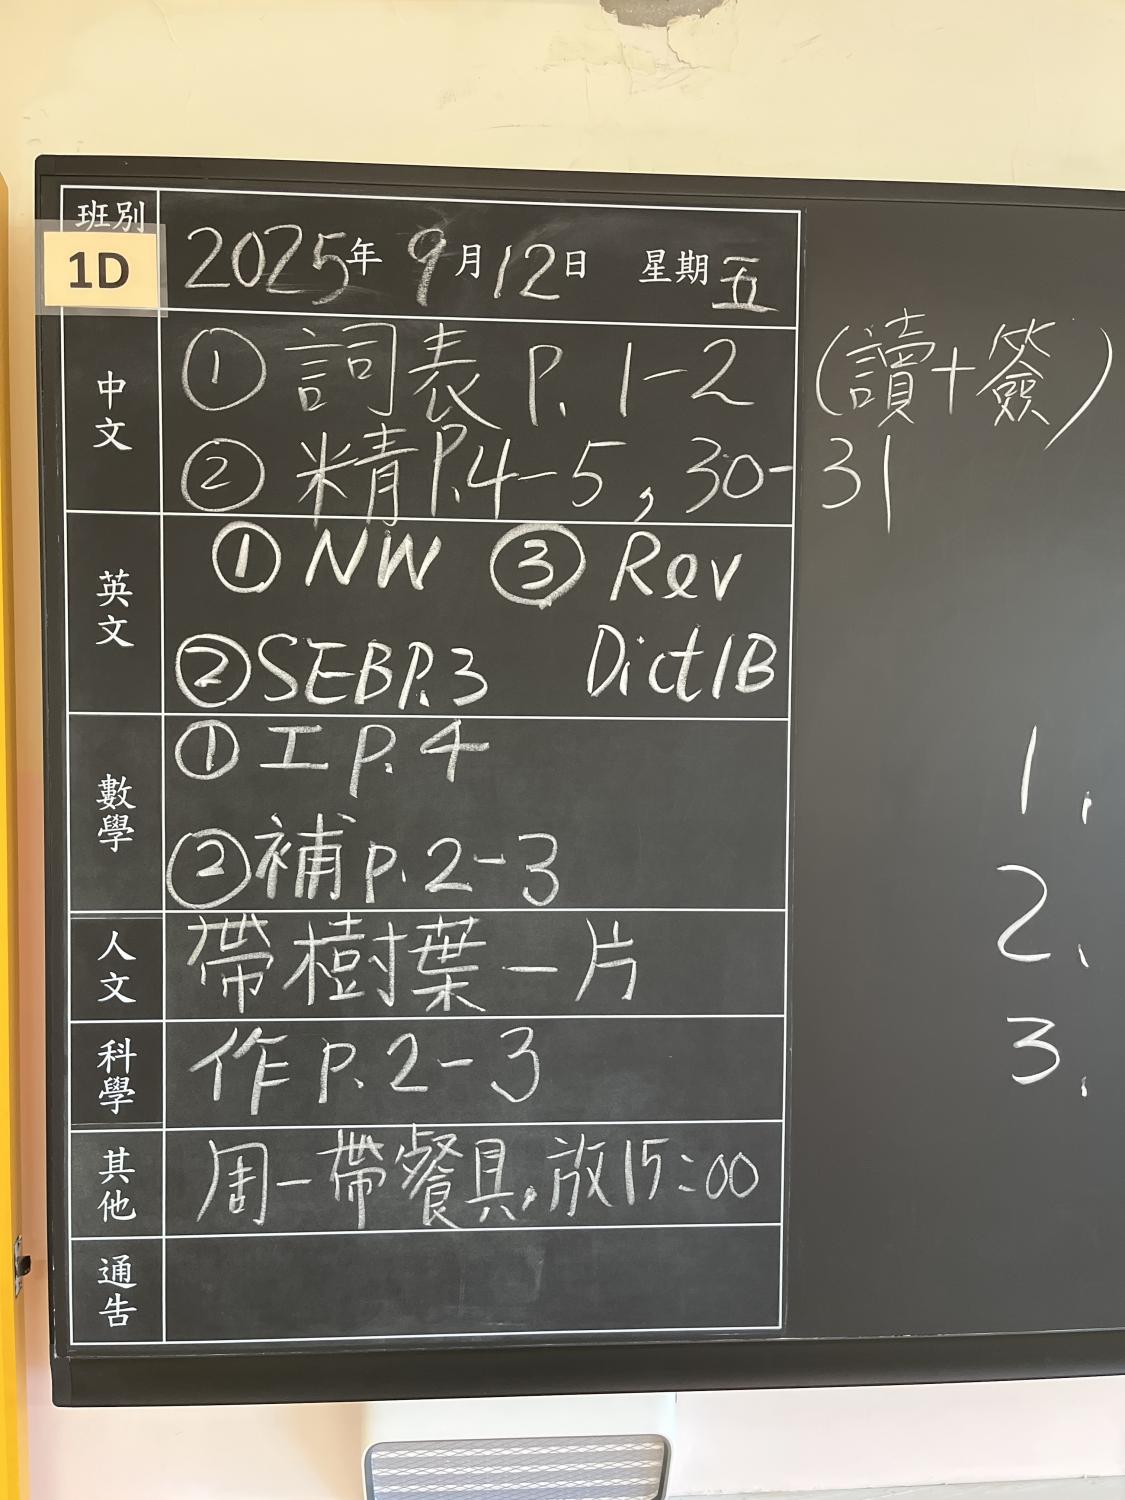 班別
1D
2025年 9月12日 星期五
中文
① 詞表 P. 1-2 (讀+簽)
② 精P.4-5, 30-31
英文
① NW ③ Rev
② SEBP.3 Dict1B
數學
① 工 P. 4
② 補 P. 2-3
人文
帶樹葉一片
科學
作 P. 2-3
其他
周一帶餐具,放15:00
通告
1.
2.
3.